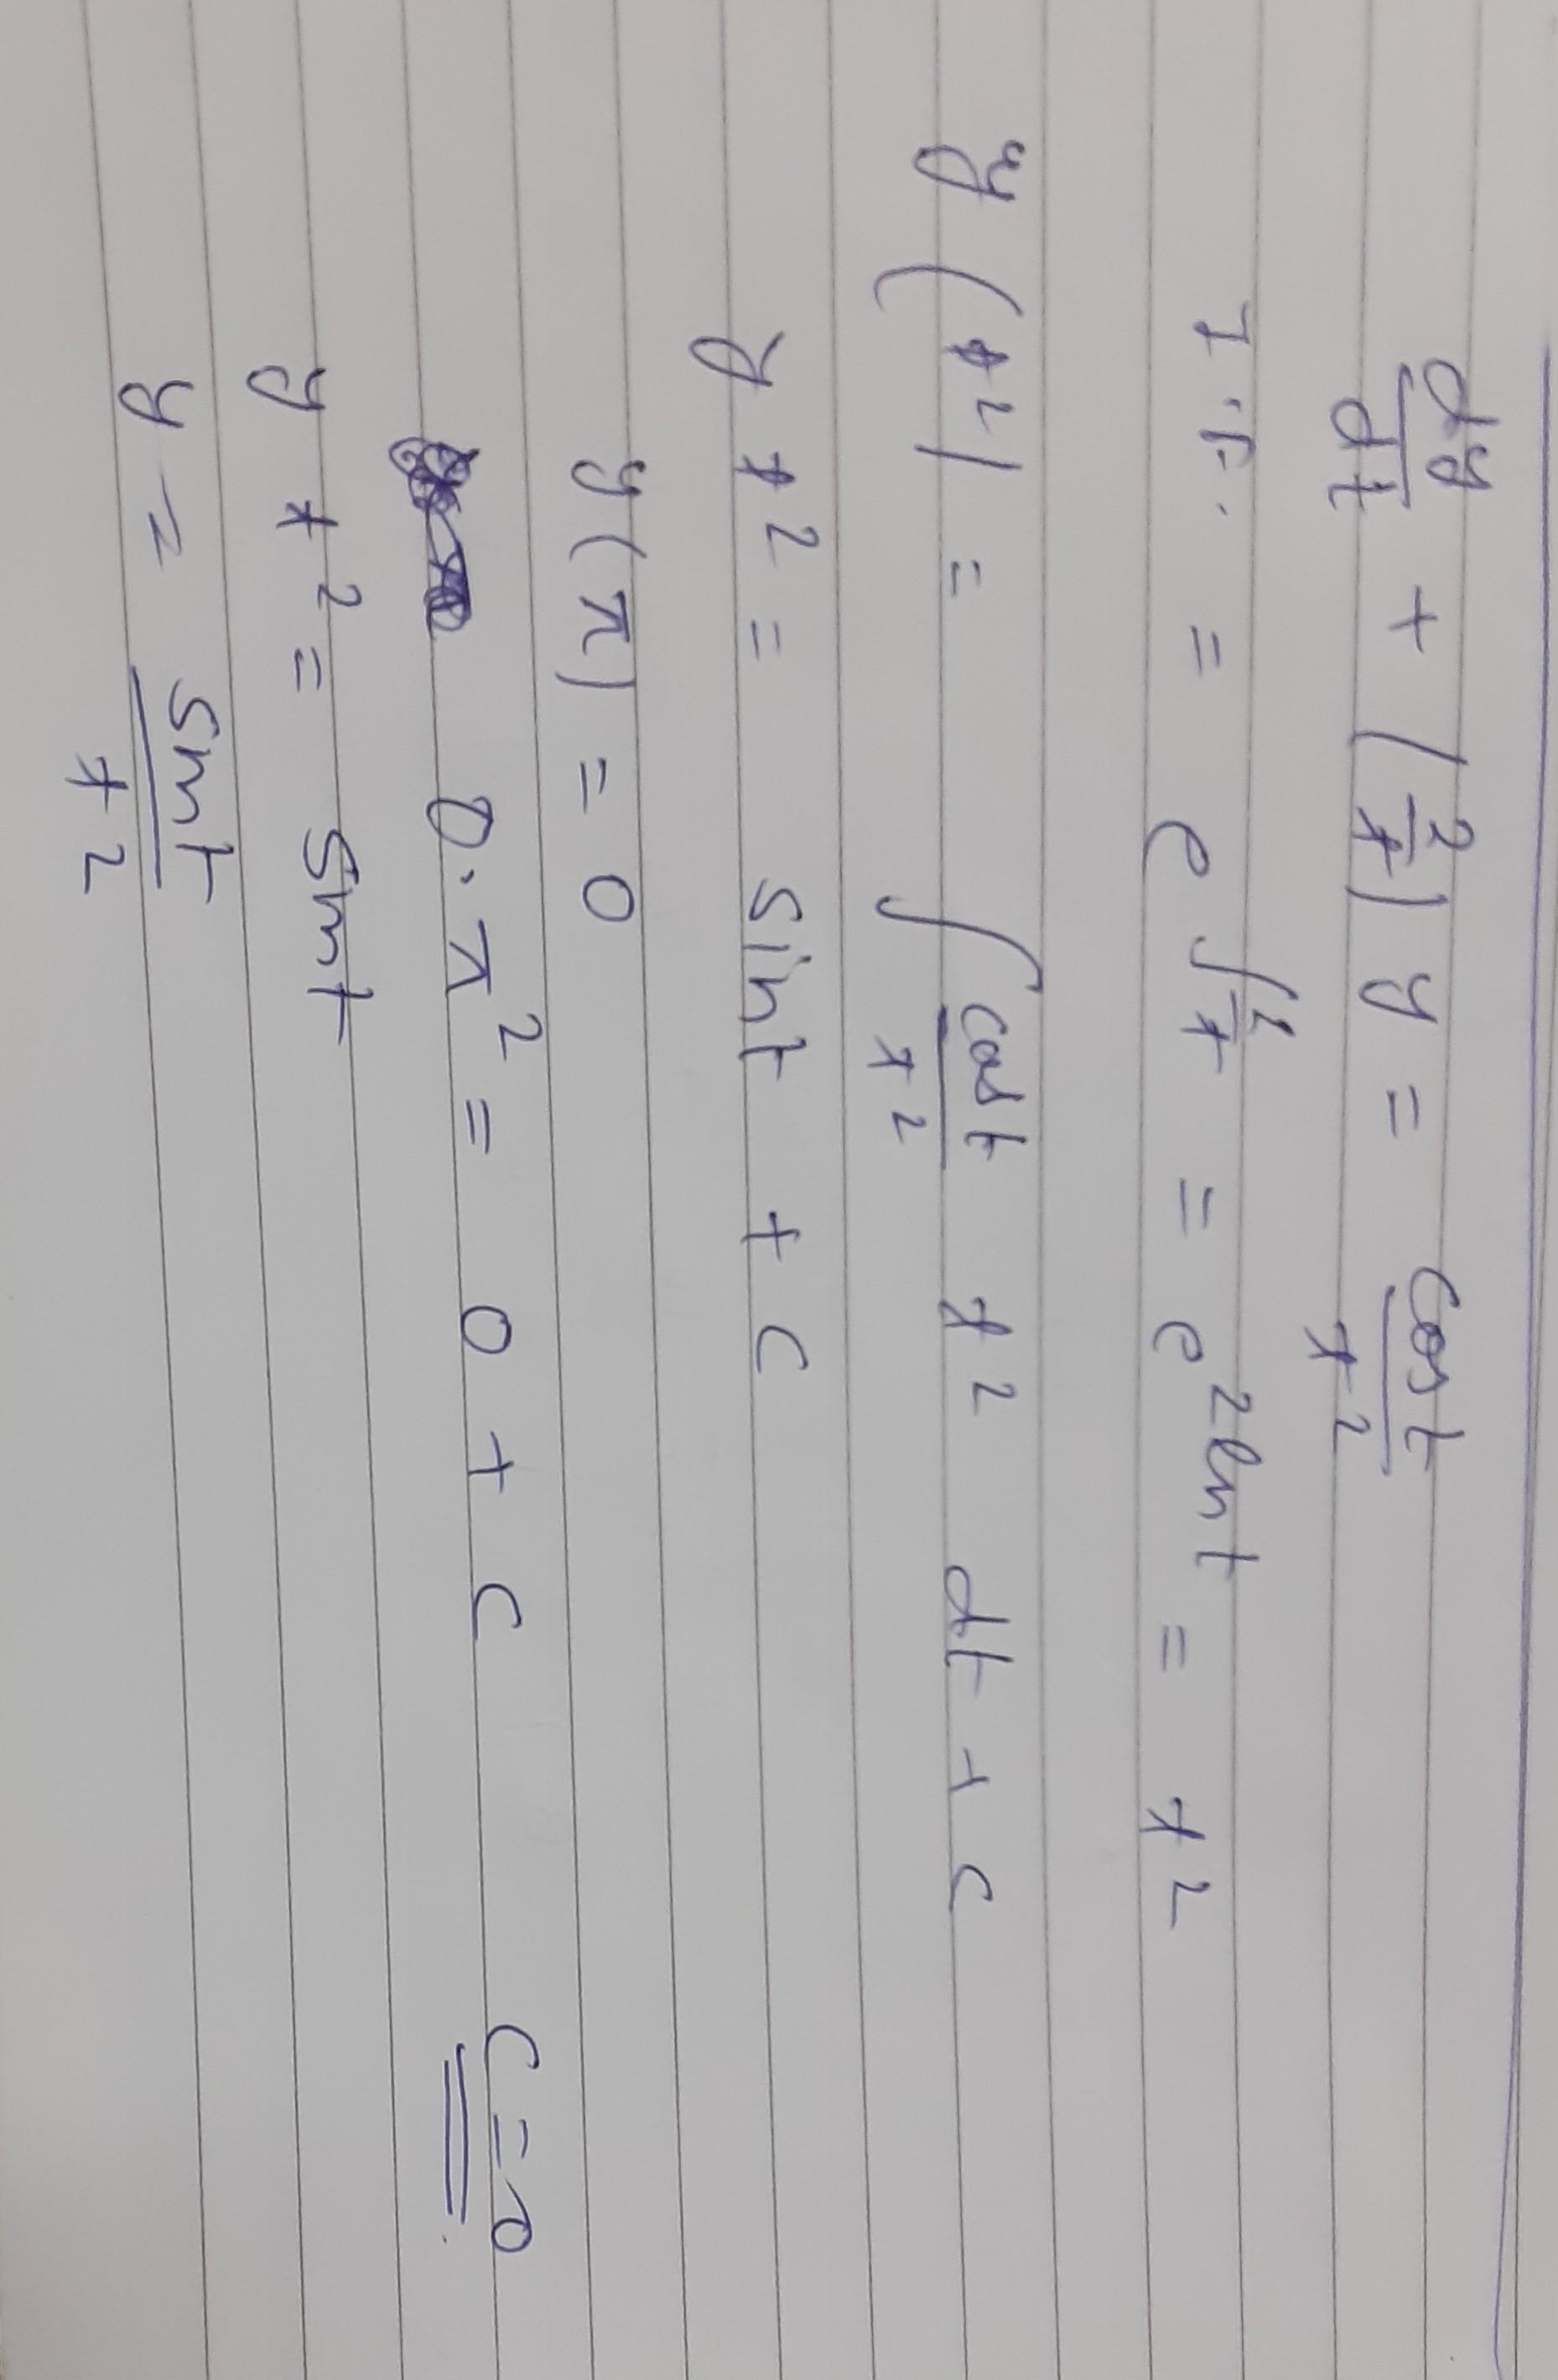 dy/dt + (2/t) y = cos t / t²
I.F. = e^∫2/t = e^2lnt = t²
y (t²) = ∫ cos t / t² t² dt + c
y t² = sint + c
y(π) = 0
0·π² = 0 + c   c=0
y t² = sint
y = sint / t²